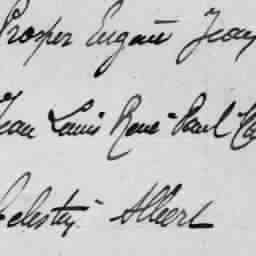 Prosper Eugène Jean
Jean Louis René Paul
Célestin Albert